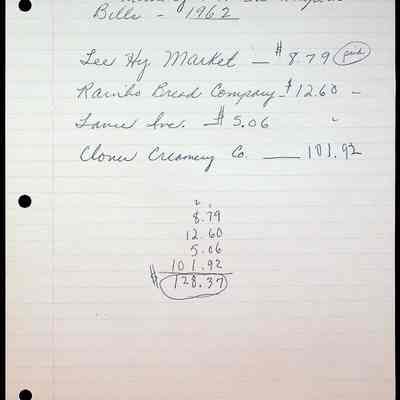 Bills - 1962
Lee Hy Market — $8.79 paid
Rainbo Bread Company - $12.60 -
Lance Inc. — $5.06
Clover Creamery Co. — 101.92
2
8.79
12.60
5.06
101.92
$128.37